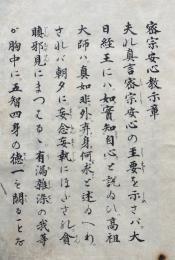 密宗安心教示章
夫れ真言密宗安心の主要を示さバ大
日経王にハ如實知自心と説ゐひ高祖
大師ハ真如非外棄身何求と述ゐへり
されバ朝夕に妄念妄執にほだされ貪
瞋邪見にまつはるゝ有漏雑染の我等
が胸中に五智四身の徳を開ることな